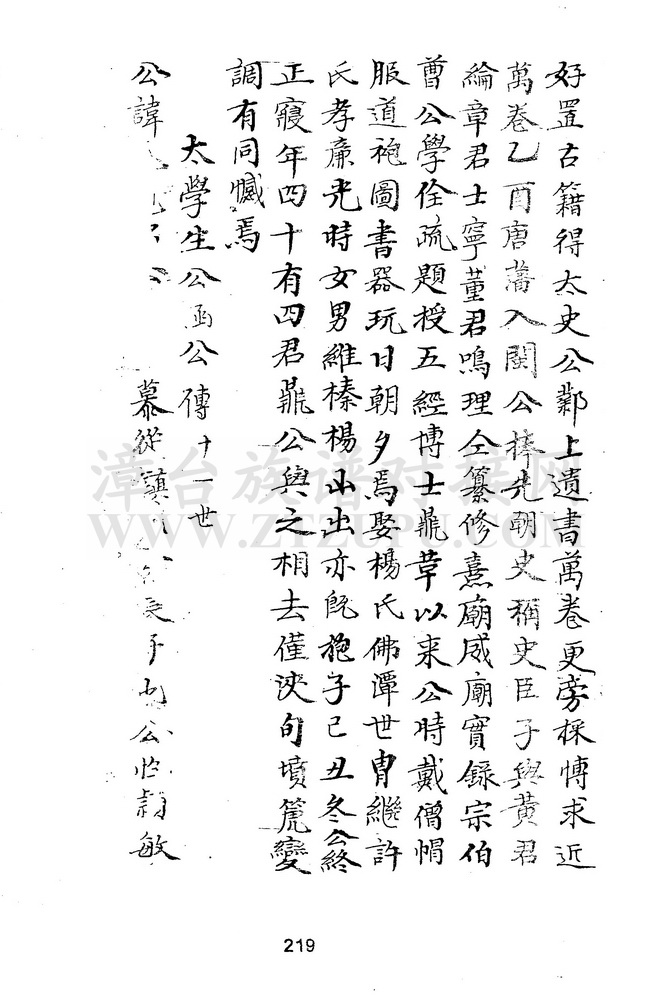 好置古籍得太史公鄴上遺書萬卷更旁採博求近
萬卷乙酉唐藩入閩公捧先朝史稱史臣子與黃君
綸章君士寧董君鳴理仝纂修熹廟威廟實錄宗伯
曹公學佺疏題授五經博士鼎革以來公時戴僧帽
服道袍圖書器玩日朝夕焉娶楊氏佛潭世胄繼許
氏孝廉光時女男維榛楊出出亦旣抱子己丑冬公終
正寢年四十有四君鼎公與之相去僅浹旬墳篪變
調有同憾焉
太學生公函公傳十一世
公諱 公 慕從 長子 公性 敏
漳台族谱对接网
WWW.ZTZUPU.COM
219